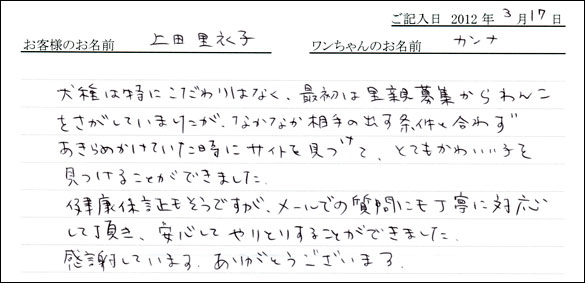 ご記入日 2012年 3月17日
お客様のお名前 上田里衣子 ワンちゃんのお名前 カンナ
犬種は特にこだわりはなく、最初は里親募集からわんこ
をさがしていましたが、なかなか相手の出す条件と合わず
あきらめかけていた時にサイトを見つけて、とてもかわいい子を
見つけることができました.
健康保証もそうですが、メールでの質問にも丁寧に対応
して頂き、安心してやりとりすることができました.
感謝しています. ありがとうございます.